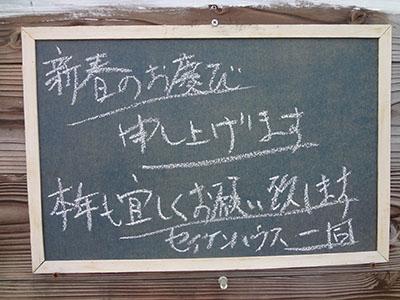 新春のお慶び
申し上げます
本年も宜しくお願い致します
セイケンハウス 一同